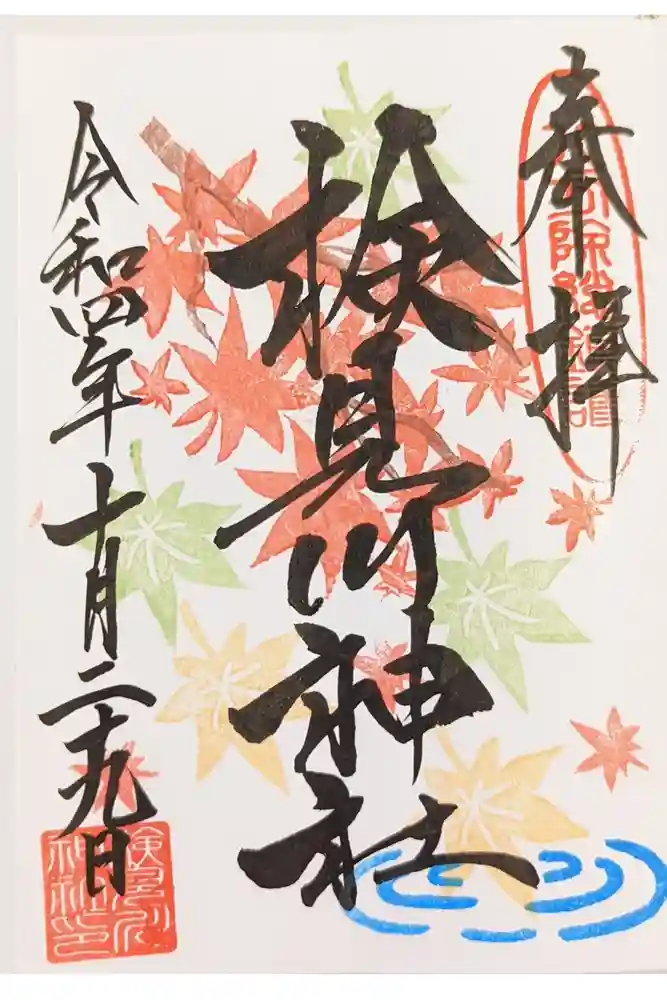 奉拝
検見川神社
令和四年十月二十九日
検見川
神社印